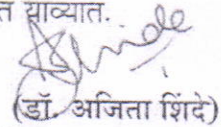 त याव्यात.
(डॉ. अजिता शिंदे)